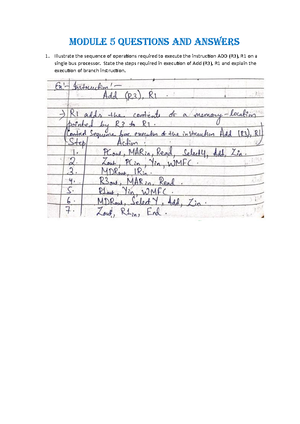 MODULE 5 QUESTIONS AND ANSWERS
1. Illustrate the sequence of operations required to execute the instruction ADD (R3), R1 on a
single bus processor. State the steps required in execution of Add (R3), R1 and explain the
execution of branch instruction.
Ex:- Instruction:-
Add (R3), R1.
→ R1 adds the contents of a memory-location
pointed by R3 to R1.
Control Sequence for execution of the instruction Add (R3), R1
Step Action
1. PCout, MARin, Read, Select4, Add, Zin.
2. Zout, PCin, Yin, WMFC.
3. MDRout, IRin.
4. R3out, MARin, Read.
5. R1out, Yin, WMFC.
6. MDRout, SelectY, Add, Zin.
7. Zout, R1in, End.